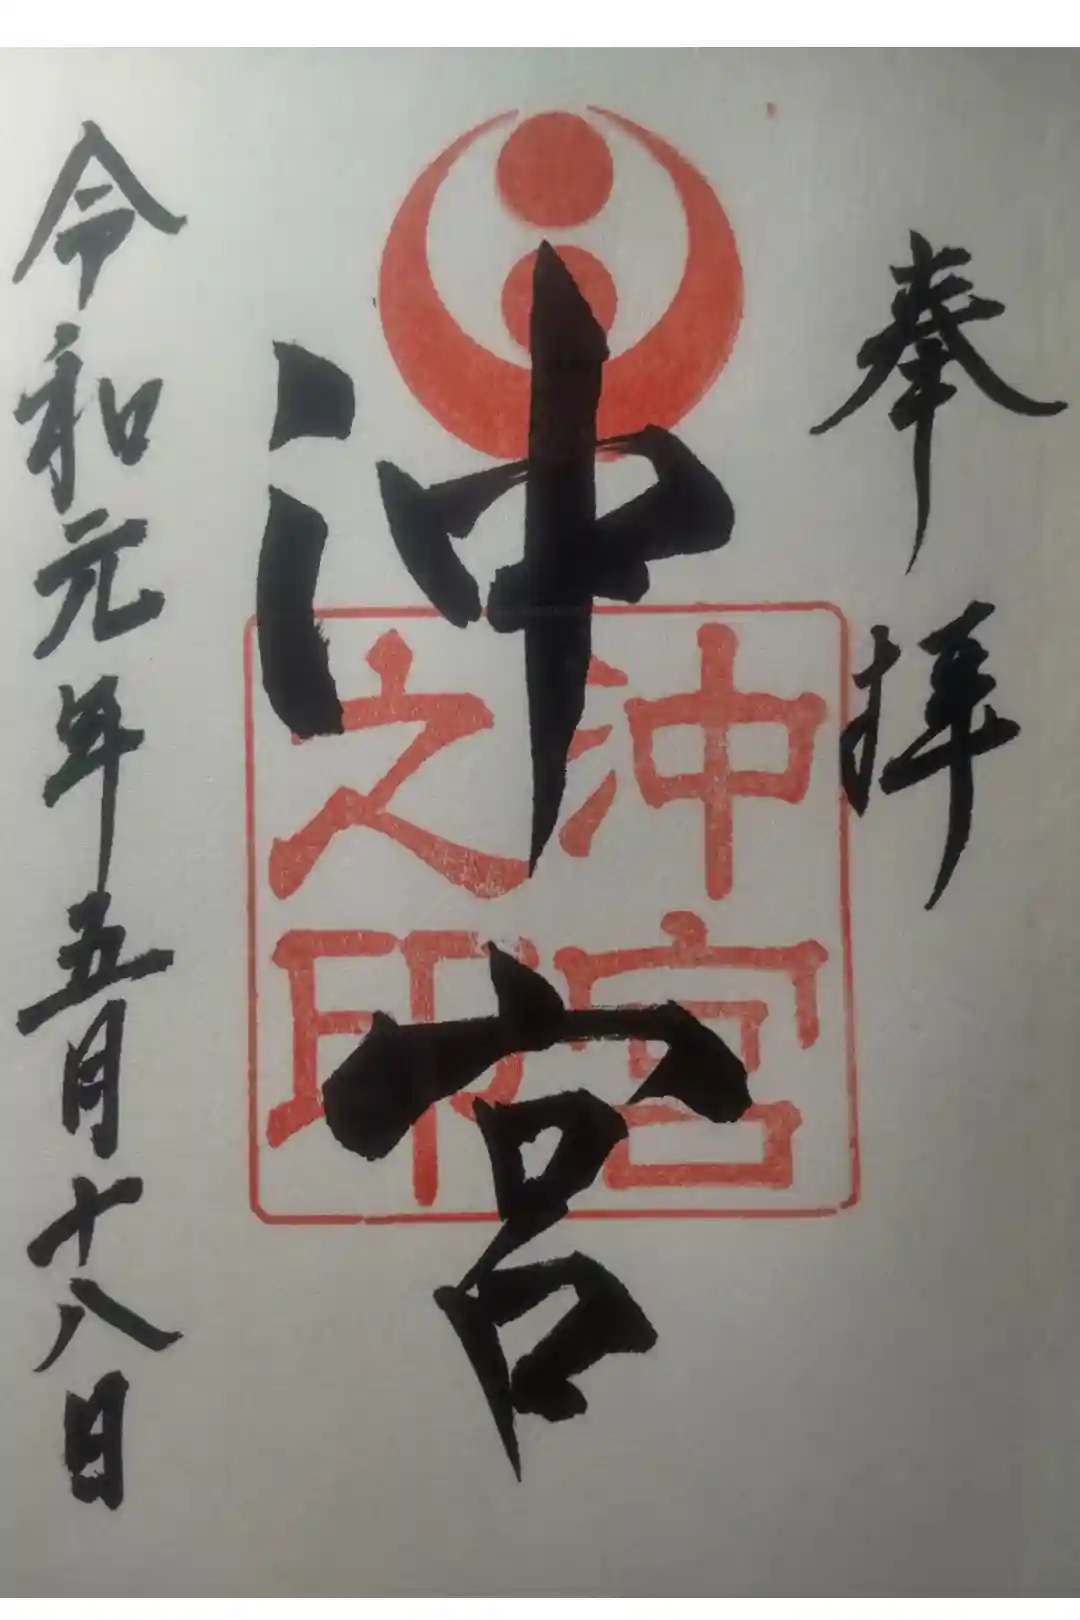 奉拝
沖宮
沖宮之印
令和元年五月十八日